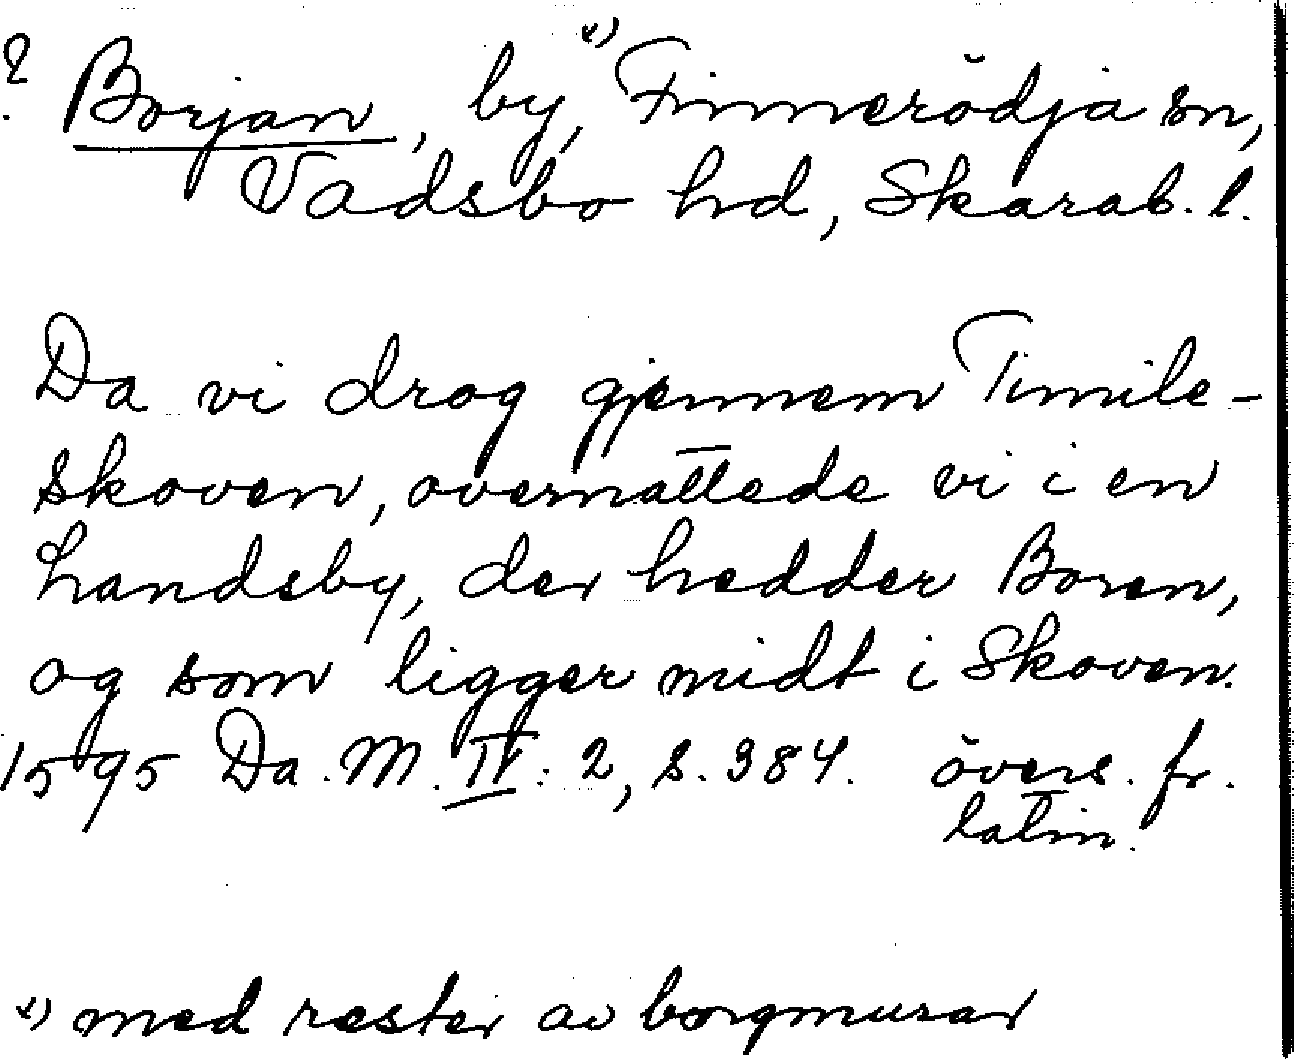 ? Borjan, by, x) Finnerödja sn,
Vadsbo hd, Skarab. l.
Da vi drog gjennem Timile-
skoven, overnattede vi i en
Landsby, der hedder Boren,
og som ligger midt i Skoven.
1595 Da. M. IV. 2, s. 384. övers. fr.
latin.
x) med rester av borgmurar